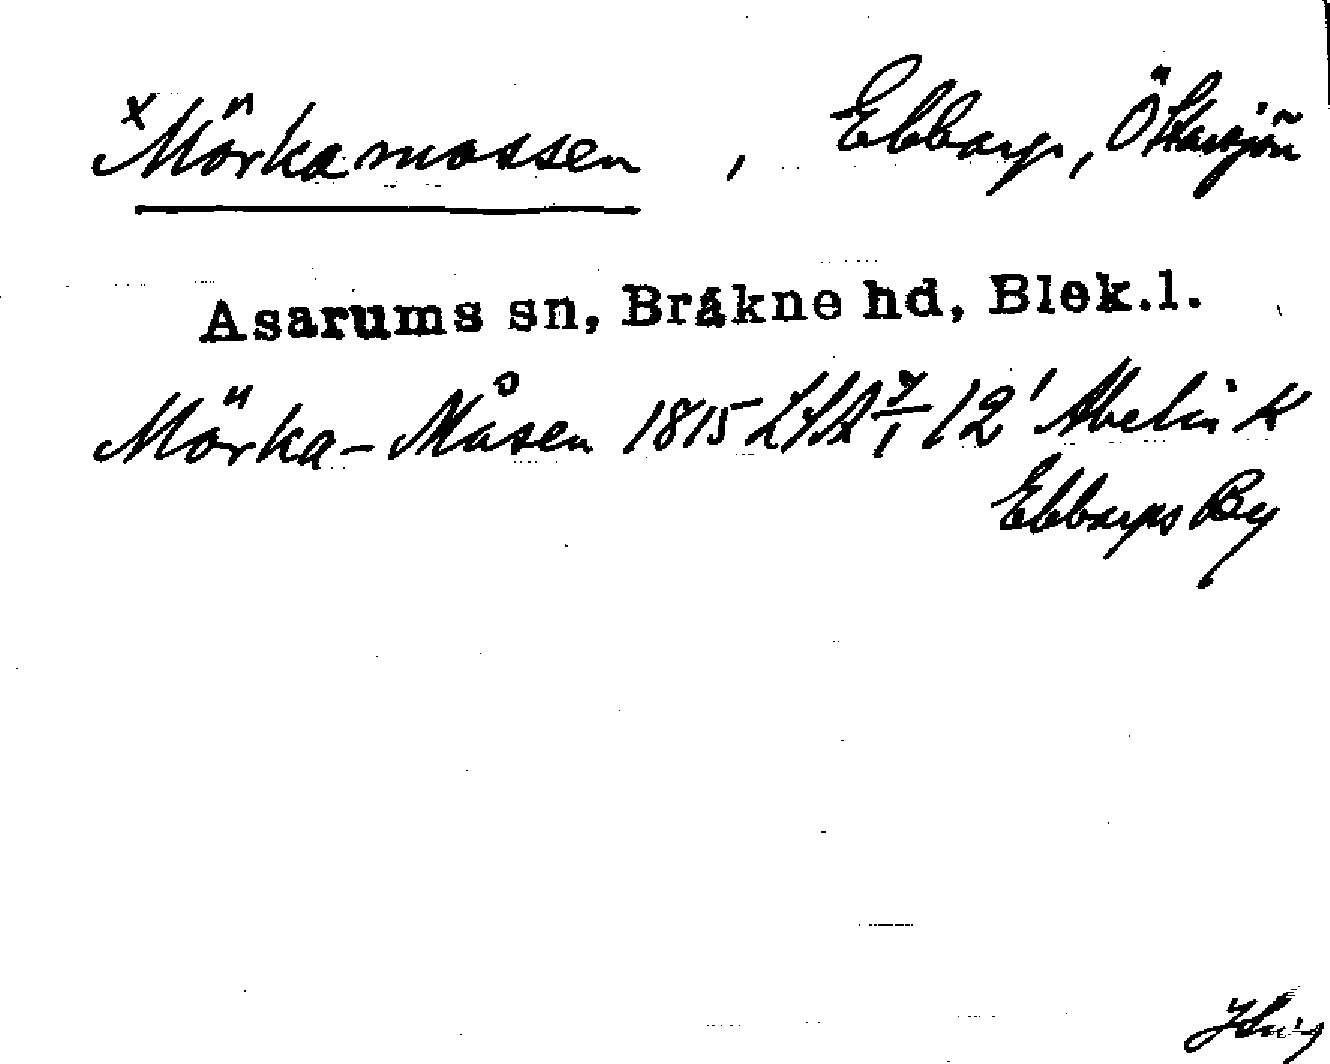 x Mörkamossen, Ebbarp, Ö
Asarums sn, Bräkne hd, Blek.l.
Mörka-Måsen 1815 LSA 7/1 12' Abelin K
Ebbarps By